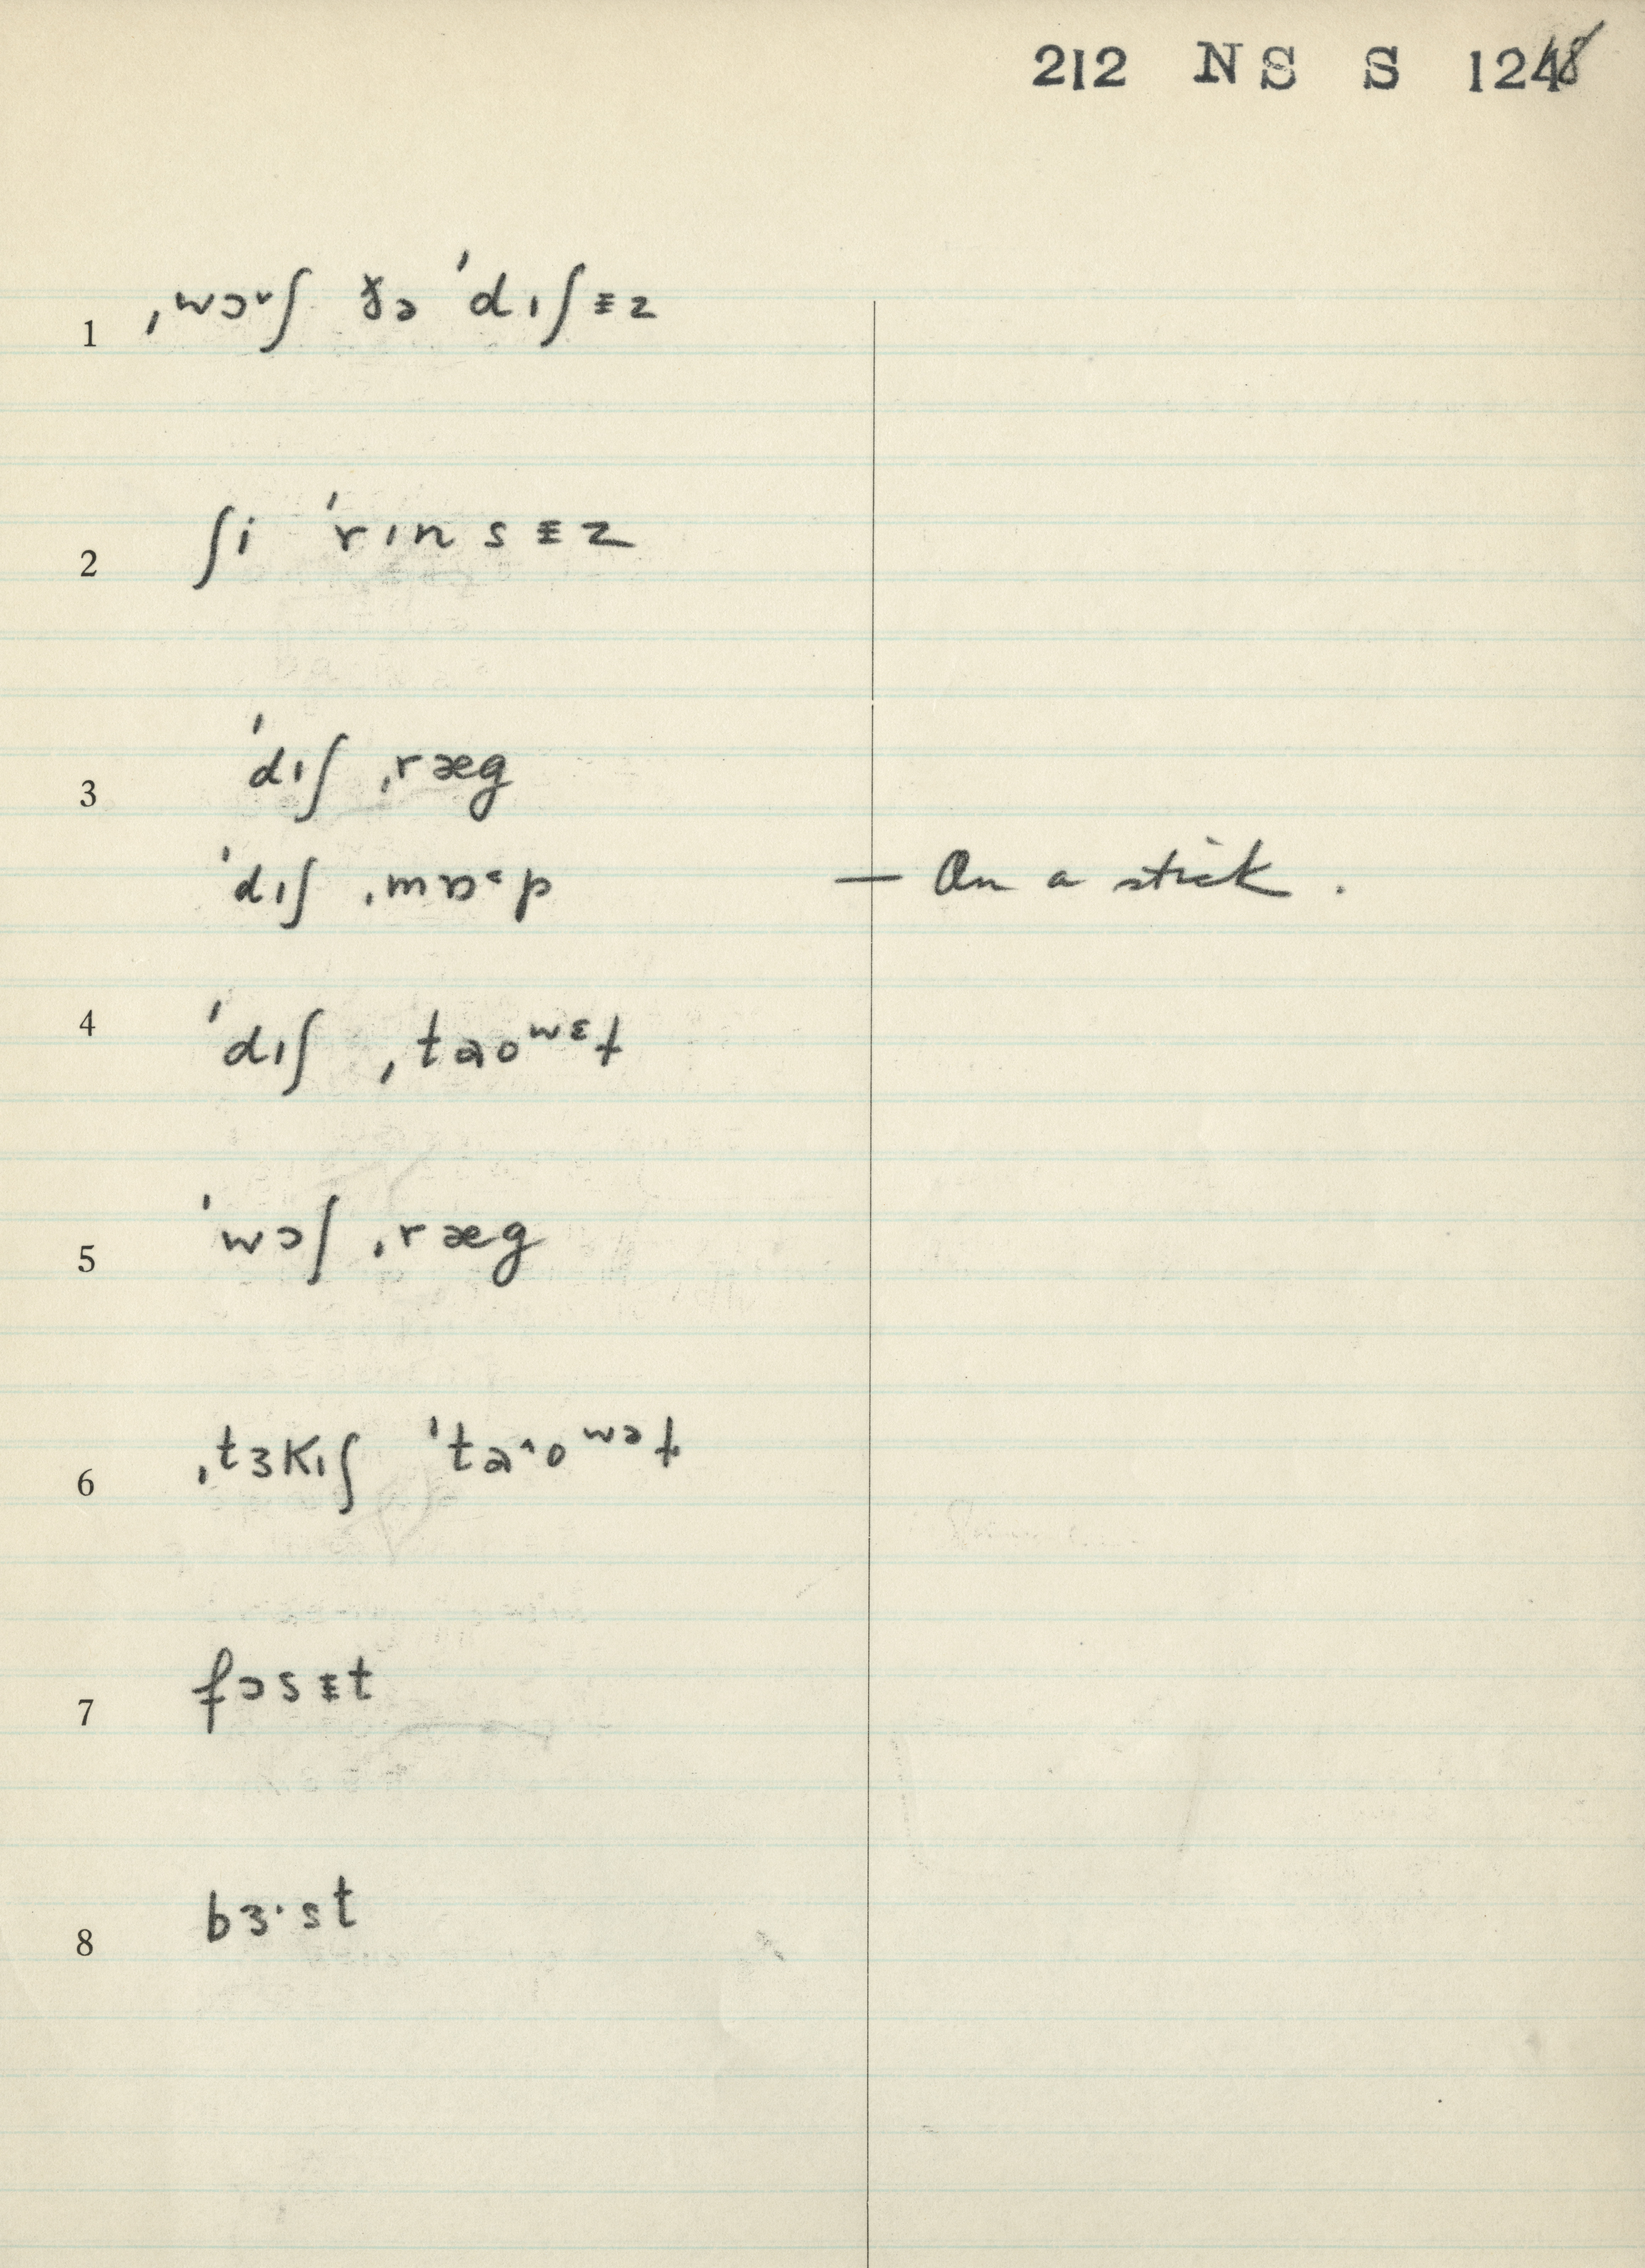 212 NS S 1248
1 ˌwɔᵛʃ ðə ˈdɪʃɪ̵z
2 ʃi ˈrɪnsɪ̵z
3 ˈdɪʃ ˌræg
ˈdɪʃ ˌmɒ˂p — On a stick.
4 ˈdɪʃ ˌtaoʷᵋɫ
5 ˈwɔʃ ˌræg
6 ˌtɜkɪʃ ˈta˄oʷᵊɫ
7 fɔsɪ̵t
8 bɜ·st